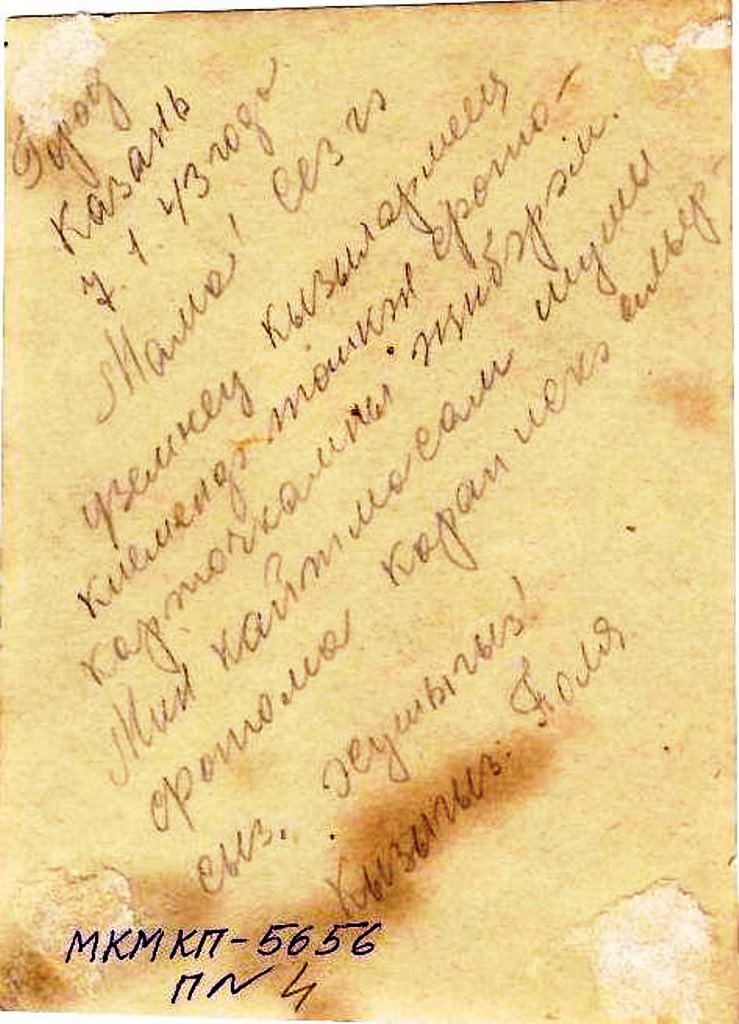 Город
Казань
7.1.43 года
Мама! Сез гә
үземнең кызылармеец
киеменда тошкән фото-
карточкамны жибәрәм.
Мин кайтмасам шушы
фотома карап искә алыр-
сыз. Хушыгыз!
Кызыгыз: Поля
МКМ КП-5656
П№ 4